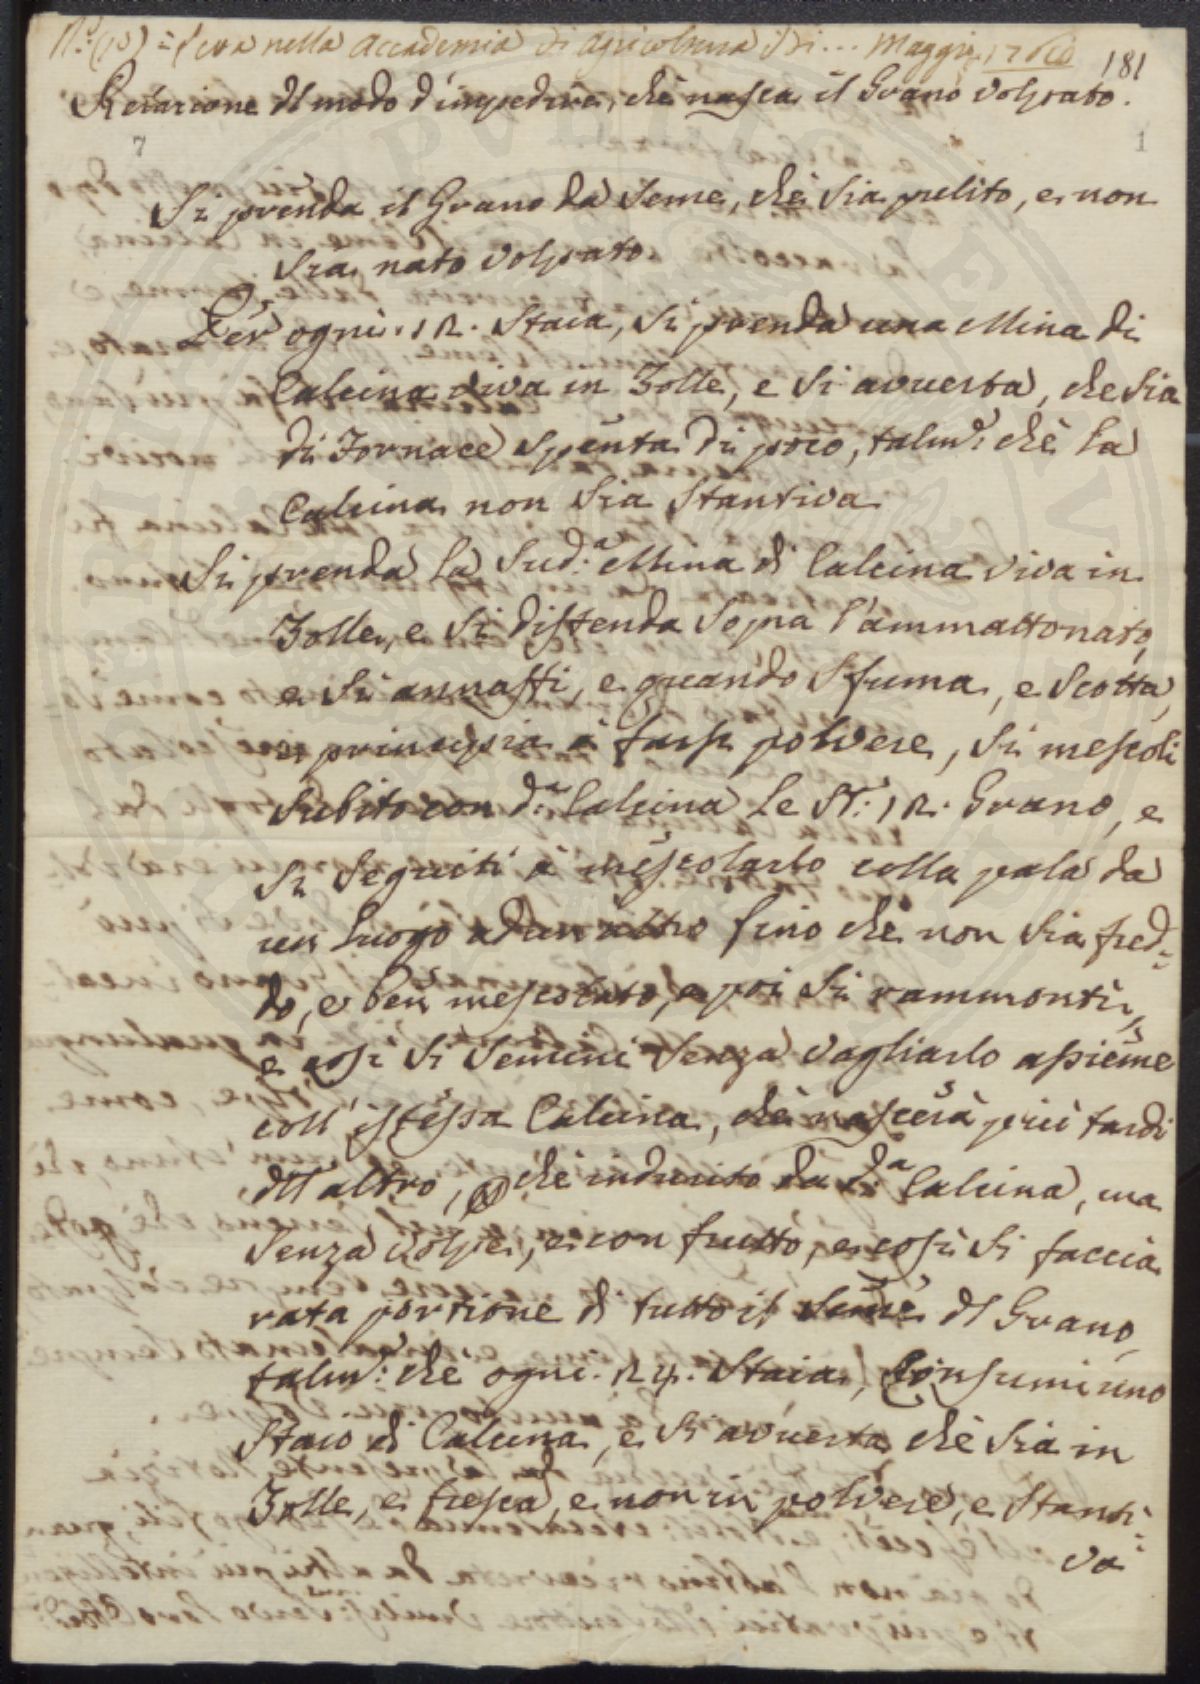 N.º (10) = Letta nella Accademia di Agricoltura il dì ... Maggio 1760
181
Relazione dl modo d'impedire, chè nasca il Grano Volpato.
7
1
Si prenda il Grano da Seme, chè Sia pulito, e non
Sia nato Volpato
Per ogni. 12. Staia, Si prenda una Mina di
Calcina viva in Zolle, e Si avverta, che Sia
di Fornace Spenta di poco, talm.e chè la
Calcina non Sia Stantiva
Si prenda la Sud.a Mina di Calcina viva in
Zolle, e Si distenda Sopra l'ammattonato,
e Si annaffi, e quando Sfuma, e Scotta,
e principia à farsi polvere, Si mescoli
Subito con d.a Calcina le St: 12. Grano, e
Si Seguiti à mescolarlo colla pala da
un luogo ad un altro fino chè non Sia fred=
do, e ben mescolato, e poi Si rammonti,
e così Si Semini Senza vagliarlo assieme
coll'istessa Calcina, chè nascerà più tardi
dll'altro, chè indurito da d.a Calcina, ma
Senza Volpe, e con frutto, e così Si faccia
rata portione di tutto il Seme dl Grano,
talm.e chè ogni. 24. Staia, Consumi uno
Staio di Calcina, e Si avverta, chè Sia in
Zolle, e fresca, e non in polvere, e Stanti=
va